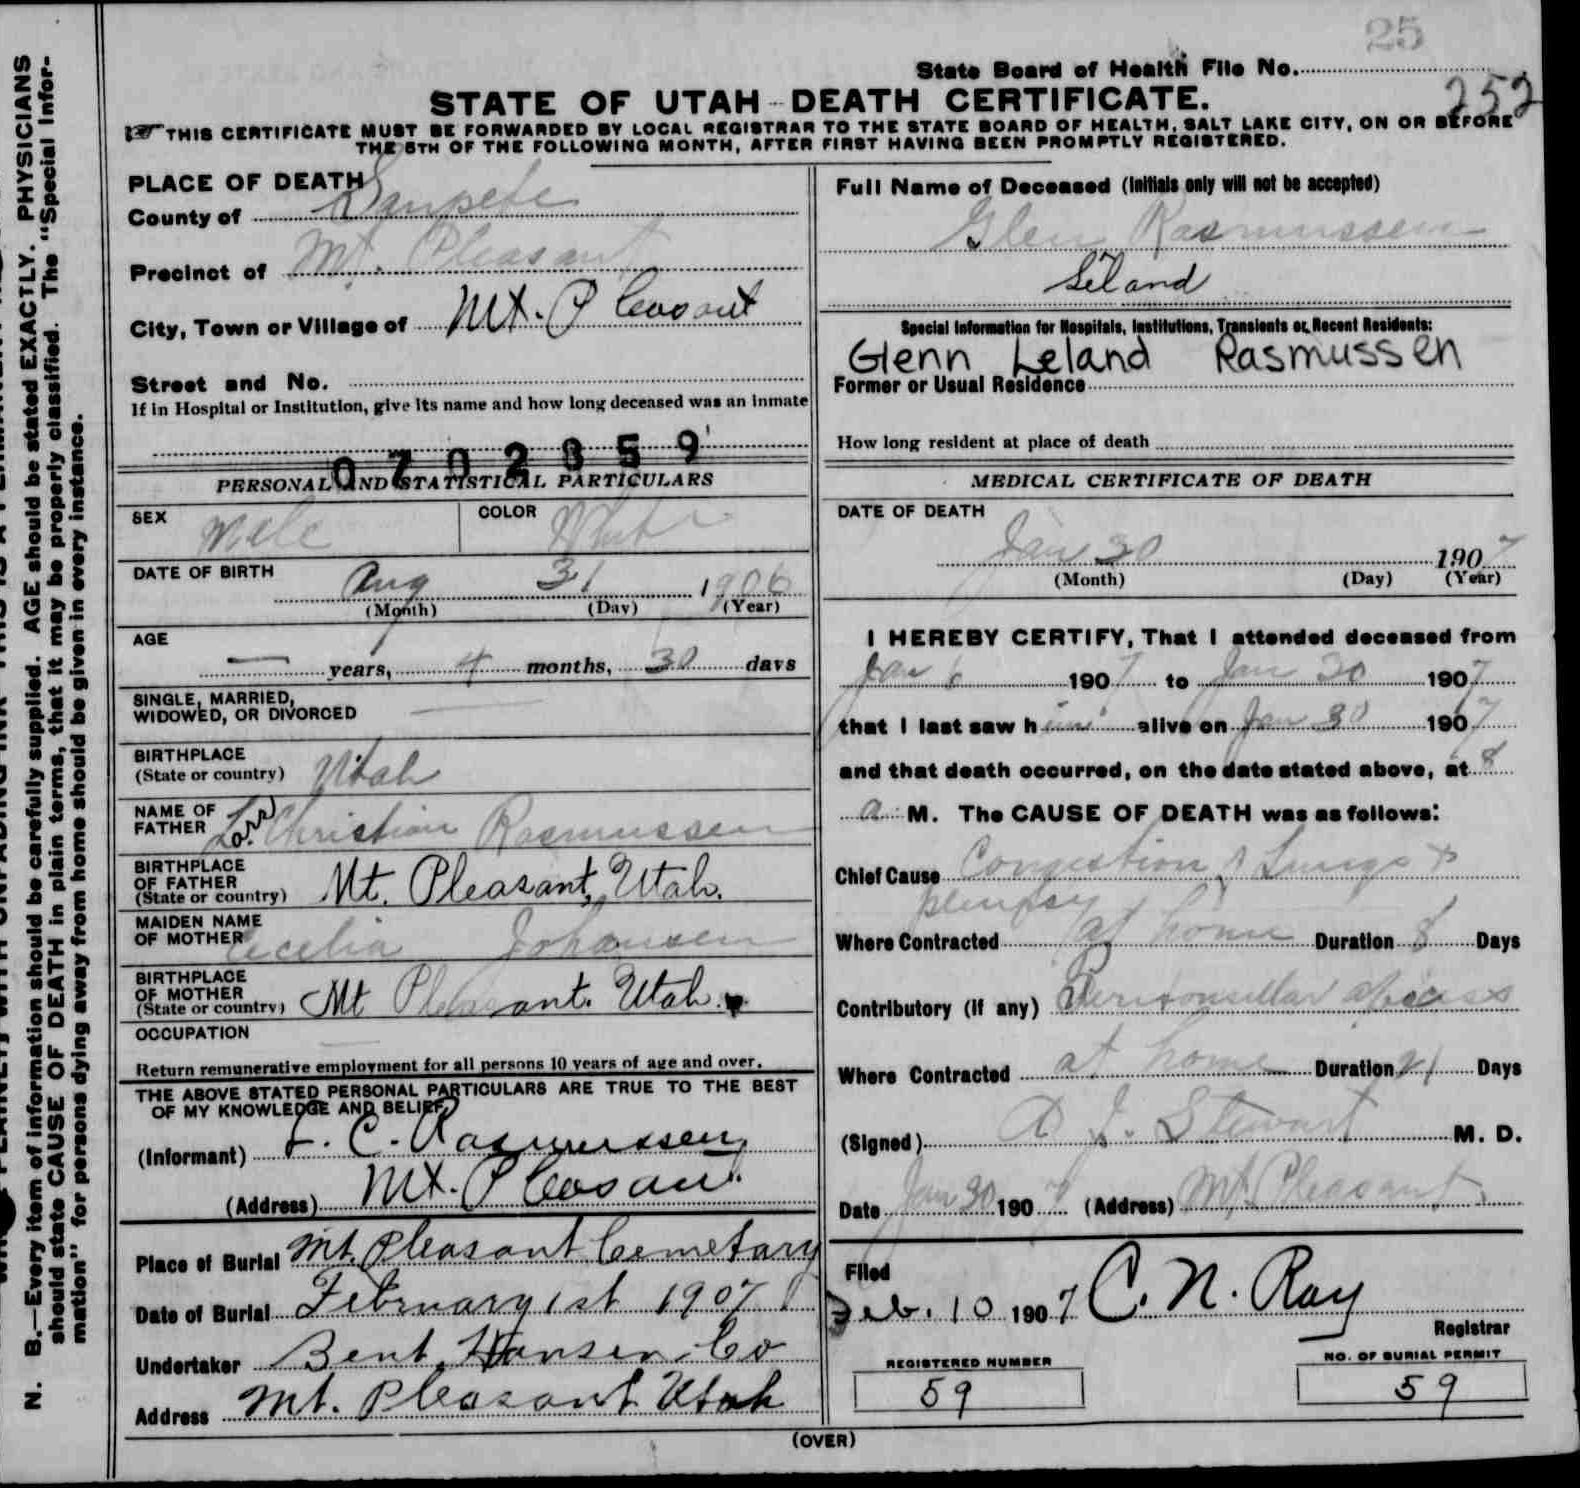 25
State Board of Health File No.
252
STATE OF UTAH - DEATH CERTIFICATE.
☞ THIS CERTIFICATE MUST BE FORWARDED BY LOCAL REGISTRAR TO THE STATE BOARD OF HEALTH, SALT LAKE CITY, ON OR BEFORE
THE 5TH OF THE FOLLOWING MONTH, AFTER FIRST HAVING BEEN PROMPTLY REGISTERED.
PLACE OF DEATH
County of Sanpete
Precinct of Mt. Pleasant
City, Town or Village of Mt. Pleasant
Street and No.
If in Hospital or Institution, give its name and how long deceased was an inmate
0702359
PERSONAL AND STATISTICAL PARTICULARS
SEX Male COLOR White
DATE OF BIRTH Aug 31 1906
(Month) (Day) (Year)
AGE
— years, 4 months, 30 days
SINGLE, MARRIED,
WIDOWED, OR DIVORCED —
BIRTHPLACE
(State or country) Utah
NAME OF
FATHER Lars Christian Rasmussen
BIRTHPLACE
OF FATHER
(State or country) Mt. Pleasant, Utah.
MAIDEN NAME
OF MOTHER Cecelia Johansen
BIRTHPLACE
OF MOTHER
(State or country) Mt Pleasant. Utah.
OCCUPATION —
Return remunerative employment for all persons 10 years of age and over.
THE ABOVE STATED PERSONAL PARTICULARS ARE TRUE TO THE BEST
OF MY KNOWLEDGE AND BELIEF
(Informant) L. C. Rasmussen
(Address) Mt. Pleasant
Place of Burial Mt. Pleasant Cemetary
Date of Burial February 1st 1907
Undertaker Bent Hansen Co
Address Mt. Pleasant Utah
Full Name of Deceased (Initials only will not be accepted)
Glen Rasmussen
Leland
Special Information for Hospitals, Institutions, Transients or Recent Residents:
Glenn Leland Rasmussen
Former or Usual Residence
How long resident at place of death
MEDICAL CERTIFICATE OF DEATH
DATE OF DEATH
Jan 30 1907
(Month) (Day) (Year)
I HEREBY CERTIFY, That I attended deceased from
Jan 6 1907 to Jan 30 1907
that I last saw him alive on Jan 30 1907
and that death occurred, on the date stated above, at 8
a M. The CAUSE OF DEATH was as follows:
Chief Cause Congestion of Lungs &
pleurisy
Where Contracted at home Duration 8 Days
Contributory (if any) Peritonsillar abscess
Where Contracted at home Duration 21 Days
(Signed) A J. Stewart M. D.
Date Jan 30 1907 (Address) Mt. Pleasant
Filed
Feb. 10 1907 C. N. Ray
Registrar
REGISTERED NUMBER
59
NO. OF BURIAL PERMIT
59
(OVER)
N. B.—Every item of information should be carefully supplied. AGE should be stated EXACTLY. PHYSICIANS
should state CAUSE OF DEATH in plain terms, that it may be properly classified. The "Special Infor-
mation" for persons dying away from home should be given in every instance.